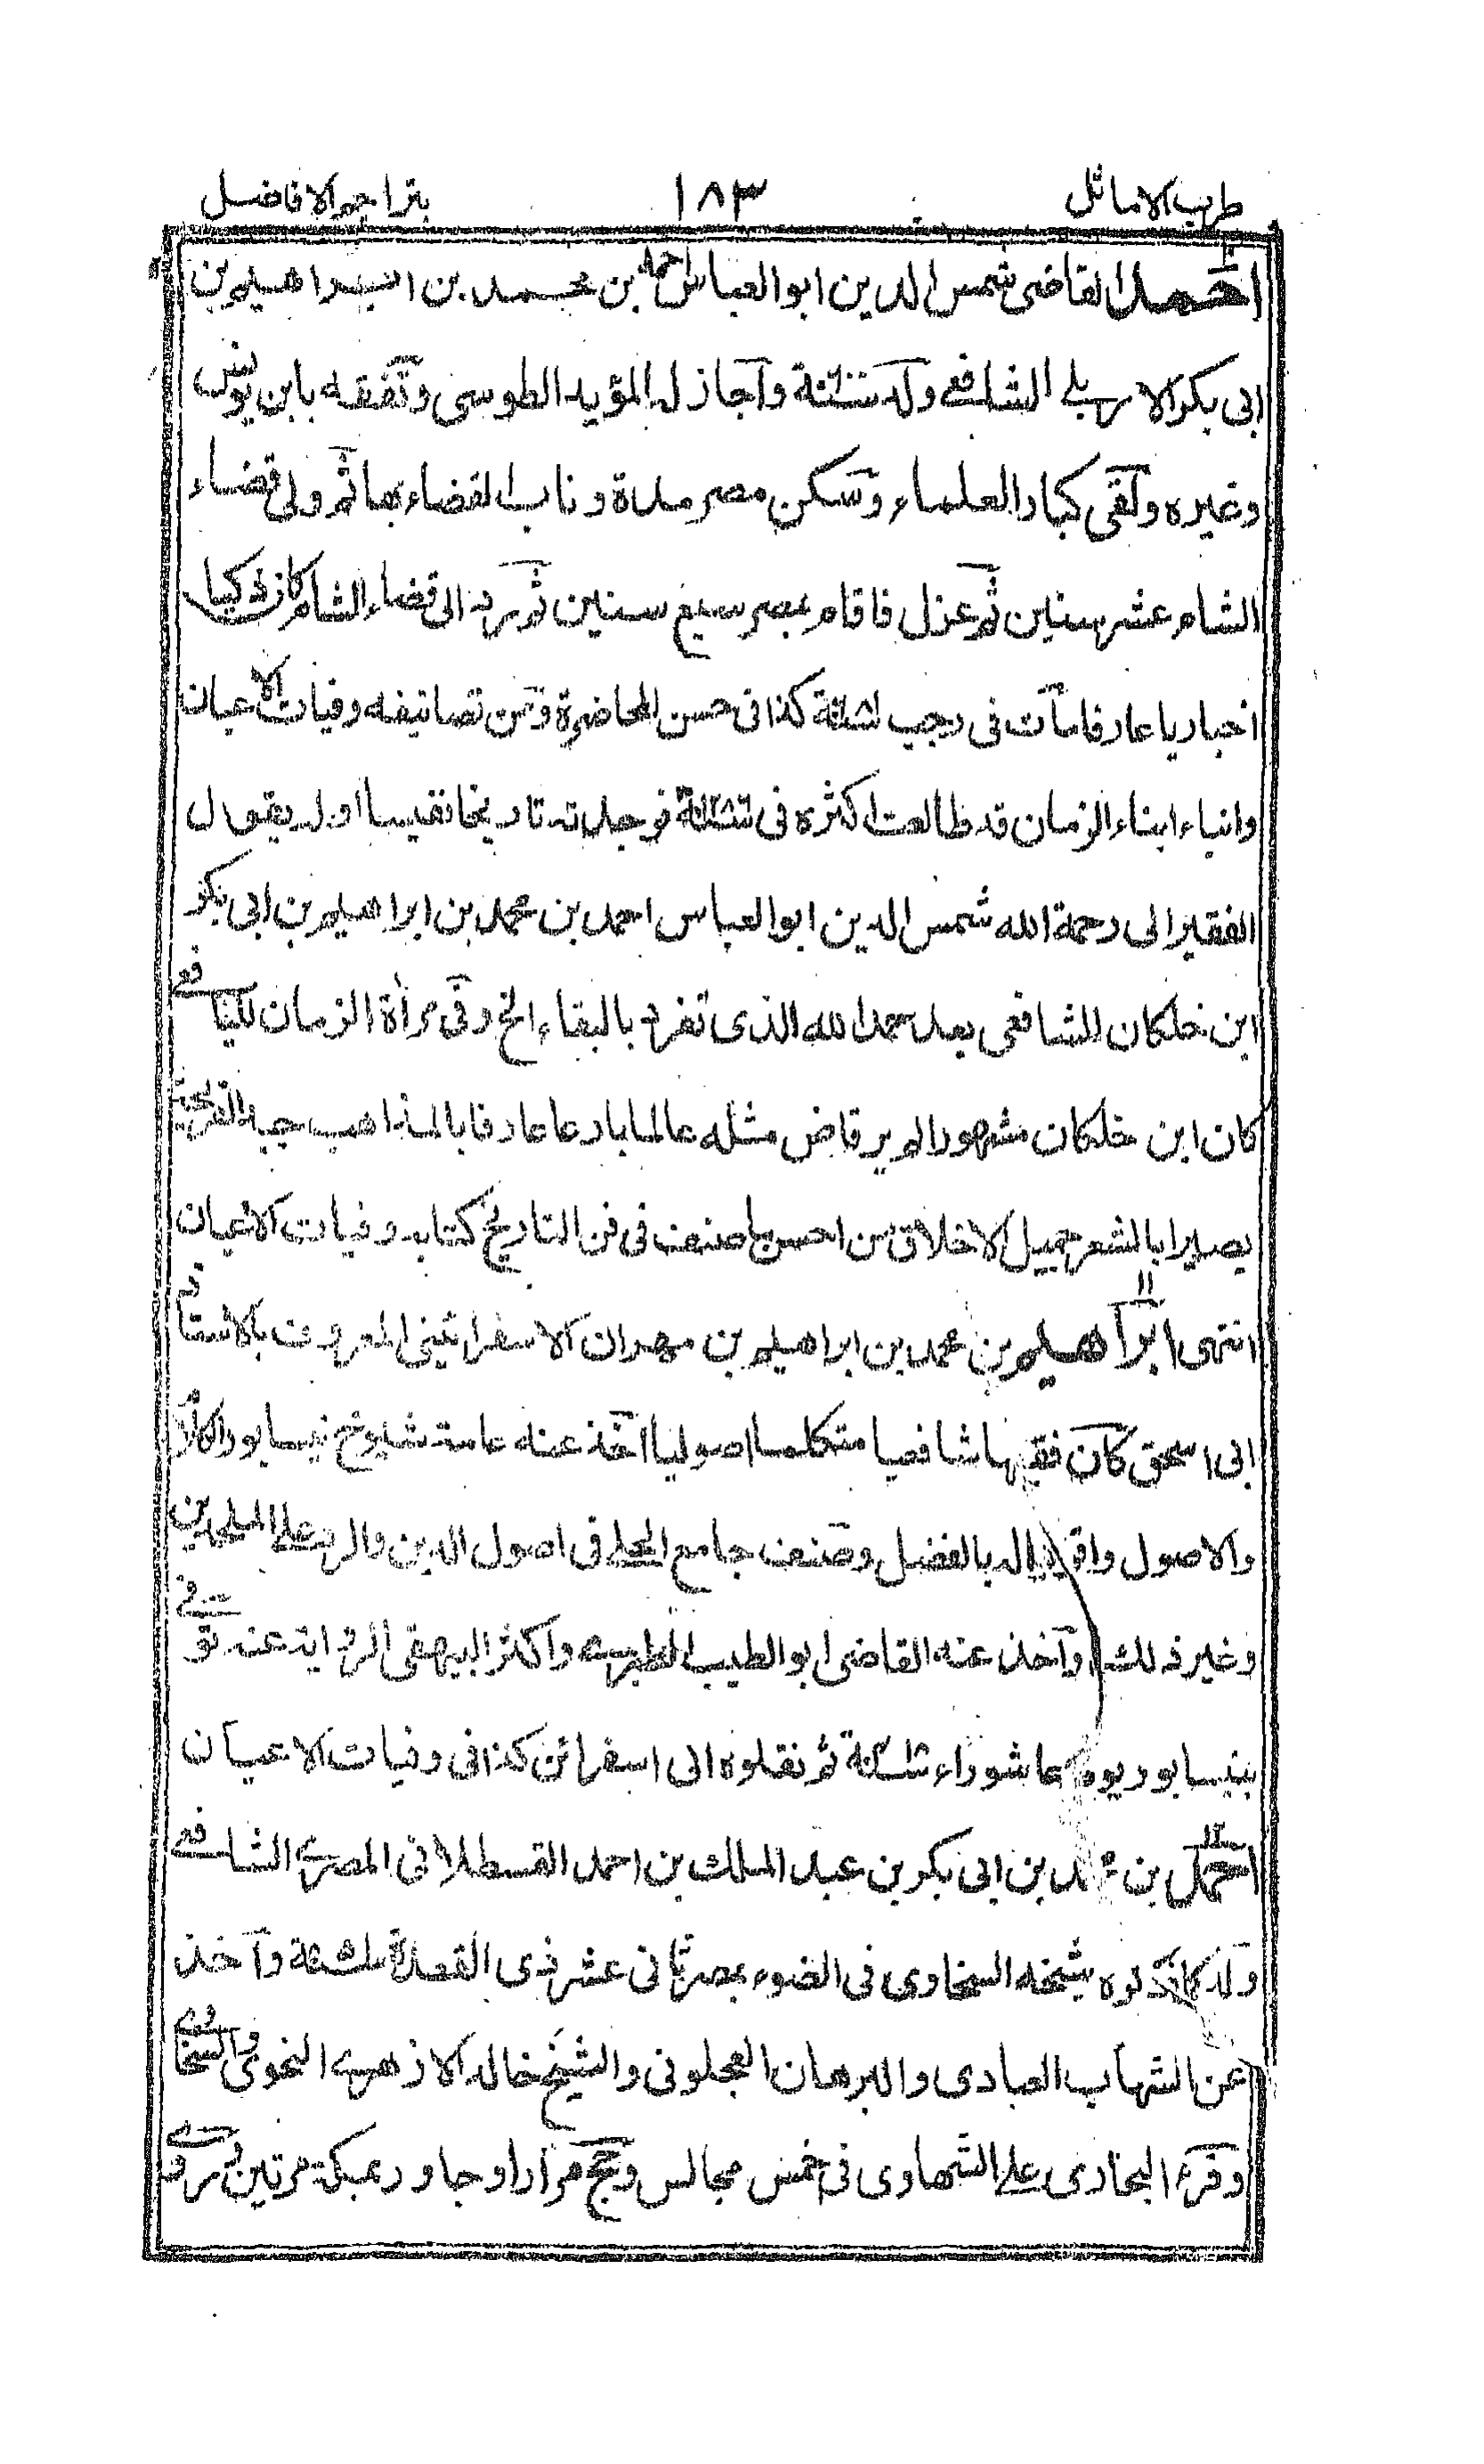 طرب الاماثل ١٨٣ بتراجم الافاضل
احمد القاضی شمس الدین ابو العباس احمد بن محمد بن ابراهیم بن
ابی بکر الاربلی الشافعی ولد وآجاز له المؤید الطوسی وتفقه بابن یونس
وغیره ولقی کبار العلماء وسکن مصر مدة وناب القضاء بها ثم ولی قضاء
الشام عشر سنین ثم عزل فاقام بمصر سبع سنین ثم رد الی قضاء الشام کان ذکیا
اخباریا عارفا مات فی رجب کذا فی حسن المحاضرة ومن تصانیفه وفیات الاعیان
وانباء ابناء الزمان قد طالعت اکثره فی فوجدته تاریخا نفیسا اوله یقول
الفقیر الی رحمة الله شمس الدین ابو العباس احمد بن محمد بن ابراهیم بن ابی بکر
ابن خلکان الشافعی بعد حمد الله الذی تفرد بالبقاء الخ وفی مرأة الزمان للیافعی
کان ابن خلکان مشهورا لم یر قاض مثله عالما بارعا عارفا بالمذاهب جید القریحة
بصیرا بالشعر جمیل الاخلاق من احسن ما صنف فی فن التاریخ کتابه وفیات الاعیان
انتهی ١١ ابراهیم بن محمد بن ابراهیم بن مهران الاسفرائینی المعروف بالاستاذ
ابی اسحق کان فقیها شافعیا متکلما اصولیا اخذ عنه عامة شیوخ نیسابور الکلام
والاصول واقر له بالفضل وصنف جامع الحلی فی اصول الدین والرد علی الملحدین
وغیر ذلك وآخذ عنه القاضی ابو الطیب الطبری واکثر البیهقی الروایة عنه توفی
بنیسابور یوم عاشوراء ثم نقلوه الی اسفرائن کذا فی وفیات الاعیان
١٢ احمد بن محمد بن ابی بکر بن عبد الملك بن احمد القسطلانی المصری الشافعی
ولد کما ذکره شیخه السخاوی فی الضوء بمصر ثانی عشر ذی القعدة وآخذ
عن الشهاب العبادی والبرهان العجلونی والشیخ خالد الازهری النحوی والسخاوی
وقرء البخاری علی الشهاوی فی خمس مجالس وحج مرارا وجاور بمکة مرتین